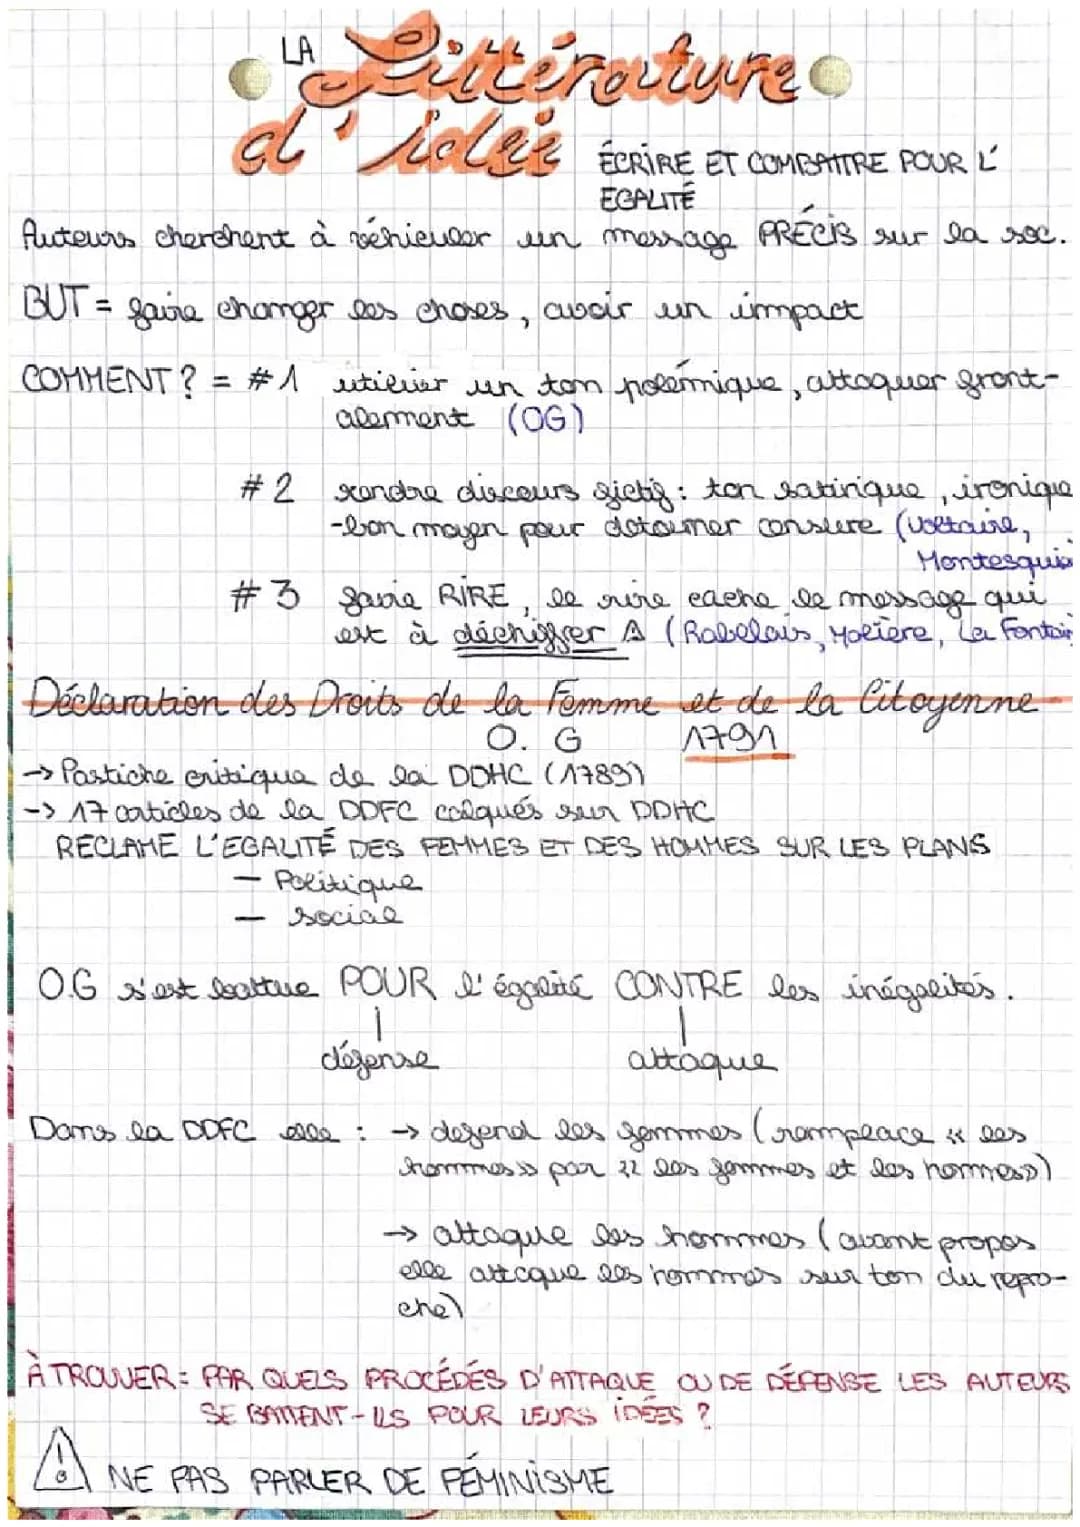 LA Littérature
d'idée
ÉCRIRE ET COMBATTRE POUR L'
EGALITÉ
Auteurs cherchent à véhiculer un message PRÉCIS sur la soc.
BUT = faire changer les choses, avoir un impact
COMMENT ? = #1 utiliser un ton polémique, attaquer front-
alement (OG)
#2 rendre discours fictif : ton satirique, ironique
-bon moyen pour detourner censure (Voltaire,
Montesquie
#3 faire RIRE, le rire cache le message qui
est à déchiffrer (Rabelais, Molière, La Fontain
Déclaration des Droits de la Femme et de la Citoyenne
O. G 1791
-> Pastiche critique de la DDHC (1789)
-> 17 articles de la DDFC calqués sur DDHC
RECLAME L'EGALITÉ DES FEMMES ET DES HOMMES SUR LES PLANS
- Politique
- social
O.G s'est battue POUR l'égalité CONTRE les inégalités.
défense attaque
Dans la DDFC elle : -> defend les femmes (remplace « les
hommes » par « les femmes et les hommes»)
-> attaque les hommes (avant propos
elle attaque les hommes sur ton du repro-
che)
À TROUVER : PAR QUELS PROCÉDÉS D'ATTAQUE OU DE DÉFENSE LES AUTEURS
SE BATTENT-ILS POUR LEURS IDÉES ?
! NE PAS PARLER DE FÉMINISME